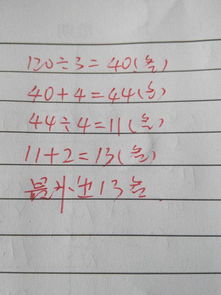 120÷3=40(名)
40+4=44(名)
44÷4=11(名)
11+2=13(名)
最外13名